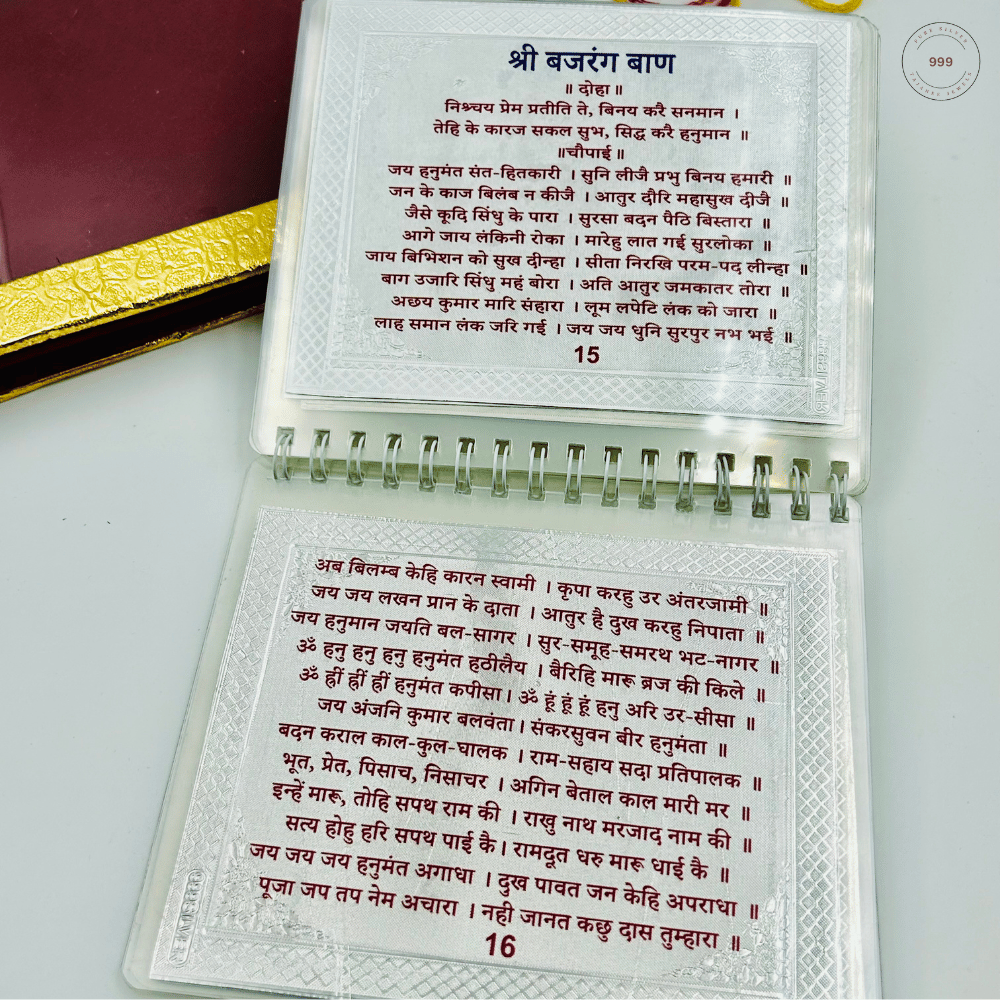 PURE SILVER
999
श्री बजरंग बाण
॥ दोहा ॥
निश्र्चय प्रेम प्रतीति ते, बिनय करै सनमान ।
तेहि के कारज सकल सुभ, सिद्ध करै हनुमान ॥
॥चौपाई ॥
जय हनुमंत संत-हितकारी । सुनि लीजै प्रभु बिनय हमारी ॥
जन के काज बिलंब न कीजै । आतुर दौरि महासुख दीजै ॥
जैसे कूदि सिंधु के पारा । सुरसा बदन पैठि बिस्तारा ॥
आगे जाय लंकिनी रोका । मारेहु लात गई सुरलोका ॥
जाय बिभिशन को सुख दीन्हा । सीता निरखि परम-पद लीन्हा ॥
बाग उजारि सिंधु महं बोरा । अति आतुर जमकातर तोरा ॥
अछय कुमार मारि संहारा । लूम लपेटि लंक को जारा ॥
लाह समान लंक जरि गई । जय जय धुनि सुरपुर नभ भई ॥
15
अब बिलम्ब केहि कारन स्वामी । कृपा करहु उर अंतरजामी ॥
जय जय लखन प्रान के दाता । आतुर है दुख करहु निपाता ॥
जय हनुमान जयति बल-सागर । सुर-समूह-समरथ भट-नागर ॥
ॐ हनु हनु हनु हनुमंत हठीलैय । बैरिहि मारू ब्रज की किले ॥
ॐ ह्रीं ह्रीं ह्रीं हनुमंत कपीसा। ॐ हूं हूं हूं हनु अरि उर-सीसा ॥
जय अंजनि कुमार बलवंता। संकरसुवन बीर हनुमंता ॥
बदन कराल काल-कुल-घालक । राम-सहाय सदा प्रतिपालक ॥
भूत, प्रेत, पिसाच, निसाचर । अगिन बेताल काल मारी मर ॥
इन्हें मारू, तोहि सपथ राम की । राखु नाथ मरजाद नाम की ॥
सत्य होहु हरि सपथ पाई कै। रामदूत धरु मारू धाई कै ॥
जय जय जय हनुमंत अगाधा । दुख पावत जन केहि अपराधा ॥
पूजा जप तप नेम अचारा । नही जानत कछु दास तुम्हारा ॥
16